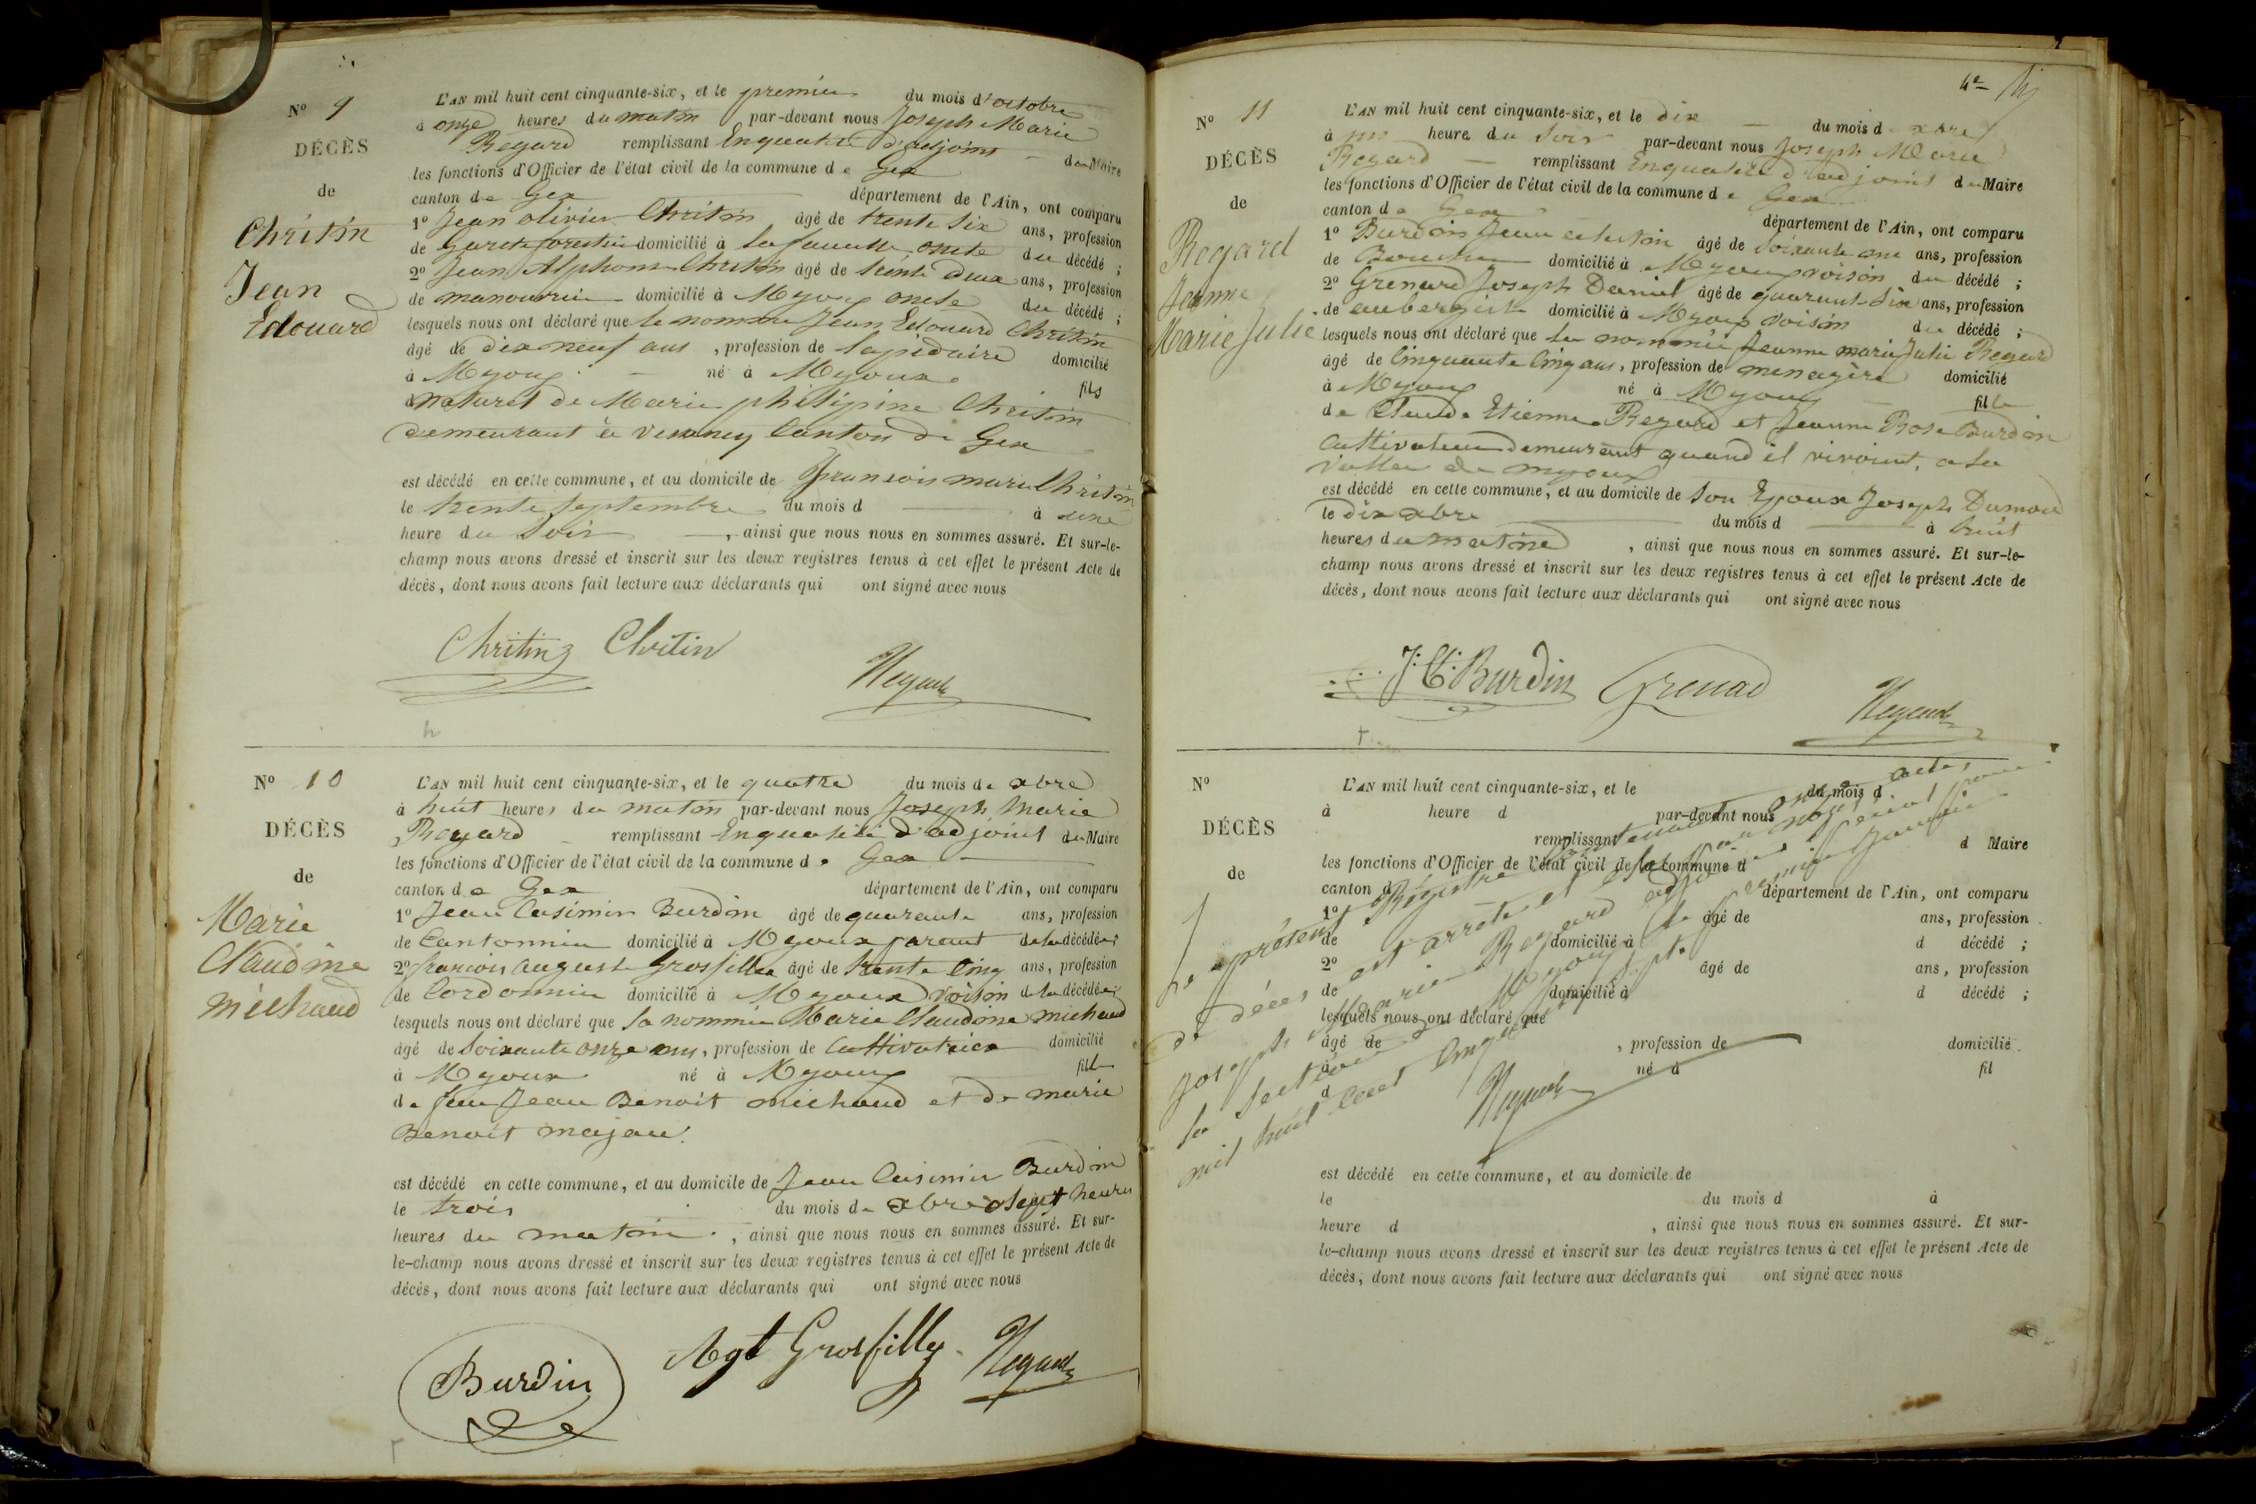 N° 9
DÉCÈS
de
Chritin
Jean
Edouard
L'AN mil huit cent cinquante-six, et le premier du mois d'octobre
à onze heures du matin par-devant nous Joseph Marie
Regard remplissant Enqualité d'adjoint du Maire
les fonctions d'Officier de l'état civil de la commune de Gex
canton de Gex département de l'Ain, ont comparu
1° Jean olivier Chritin âgé de trente six ans, profession
de Garde forestier domicilié à la faucille oncle du décédé ;
2° Jean Alphonse Chritin âgé de trente deux ans, profession
de manouvrier domicilié à Myoux oncle du décédé ;
lesquels nous ont déclaré que le nommé Jean Edouard Chritin
âgé de dix neuf ans, profession de lapidaire domicilié
à Myoux né à Myoux fils
naturel de Marie philipine Chritin
demeurant à vesancy Canton de Gex
est décédé en cette commune, et au domicile de françois marie Chritin
le trente septembre du mois d à une
heure du soir, ainsi que nous nous en sommes assuré. Et sur-le-
champ nous avons dressé et inscrit sur les deux registres tenus à cet effet le présent Acte de
décès, dont nous avons fait lecture aux déclarants qui ont signé avec nous
Chritin Chritin
Regard
N° 10
DÉCÈS
de
Marie
Claudine
michaud
L'AN mil huit cent cinquante-six, et le quatre du mois de xbre
à huit heures du matin par-devant nous Joseph Marie
Regard remplissant Enqualité d'adjoint du Maire
les fonctions d'Officier de l'état civil de la commune de Gex
canton de Gex département de l'Ain, ont comparu
1° Jean Casimir Burdin âgé de quarante ans, profession
de Cantonnier domicilié à Myoux parent de la décédée ;
2° françois auguste Grosfilley âgé de trente cinq ans, profession
de Cordonnier domicilié à Myoux voisin de la décédée ;
lesquels nous ont déclaré que la nommée Marie Claudine michaud
âgé de soixante onze ans, profession de Cultivatrice domicilié
à Myoux né à Myoux fille
de feu Jean Benoit michaud et de marie
Benoit majau
est décédé en cette commune, et au domicile de Jean Casimir Burdin
le trois du mois de xbre à sept heures
heures du matin, ainsi que nous nous en sommes assuré. Et sur-
le-champ nous avons dressé et inscrit sur les deux registres tenus à cet effet le présent Acte de
décès, dont nous avons fait lecture aux déclarants qui ont signé avec nous
Burdin Agt Grosfilley Regard
N° 11
DÉCÈS
de
Regard
Jeanne
Marie Julie
L'AN mil huit cent cinquante-six, et le dix du mois de xbre
à une heure du soir par-devant nous Joseph Marie
Regard remplissant Enqualité d'adjoint du Maire
les fonctions d'Officier de l'état civil de la commune de Gex
canton de Gex département de l'Ain, ont comparu
1° Burdin Jean âgé de soixante ans, profession
de domicilié à Myoux voisin du décédé ;
2° Grenard Joseph Daniel âgé de quarante six ans, profession
de aubergiste domicilié à Myoux voisin du décédé ;
lesquels nous ont déclaré que la nommée Jeanne marie Julie Regard
âgé de Cinquante Cinq ans, profession de menagère domicilié
à Myoux né à Myoux fille
de Claude Etienne Regard et Jeanne Rose Burdin
Cultivateur demeurant quand il vivoient, a la
Vallée de myoux
est décédé en cette commune, et au domicile de son Epoux Joseph Dumon
le dix xbre du mois d à huit
heures du matin, ainsi que nous nous en sommes assuré. Et sur-le-
champ nous avons dressé et inscrit sur les deux registres tenus à cet effet le présent Acte de
décès, dont nous avons fait lecture aux déclarants qui ont signé avec nous
J: Ct: Burdin Grenad
Regard
N°
DÉCÈS
de
L'AN mil huit cent cinquante-six, et le du mois d
à heure d par-devant nous
remplissant d Maire
les fonctions d'Officier de l'état civil de la commune d
canton d département de l'Ain, ont comparu
1° âgé de ans, profession
de domicilié à d décédé ;
2° âgé de ans, profession
de domicilié à d décédé ;
lesquels nous ont déclaré que
âgé de , profession de domicilié
à né à fil
d
Le présent Registre contenant onze actes
de décès est arrêté et
joseph Marie Regard adjoint spécial pour
la section de Myoux le premier Janvier
mil huit cent Cinquante sept.
Regard
est décédé en cette commune, et au domicile de
le du mois d à
heure d , ainsi que nous nous en sommes assuré. Et sur-
le-champ nous avons dressé et inscrit sur les deux registres tenus à cet effet le présent Acte de
décès, dont nous avons fait lecture aux déclarants qui ont signé avec nous